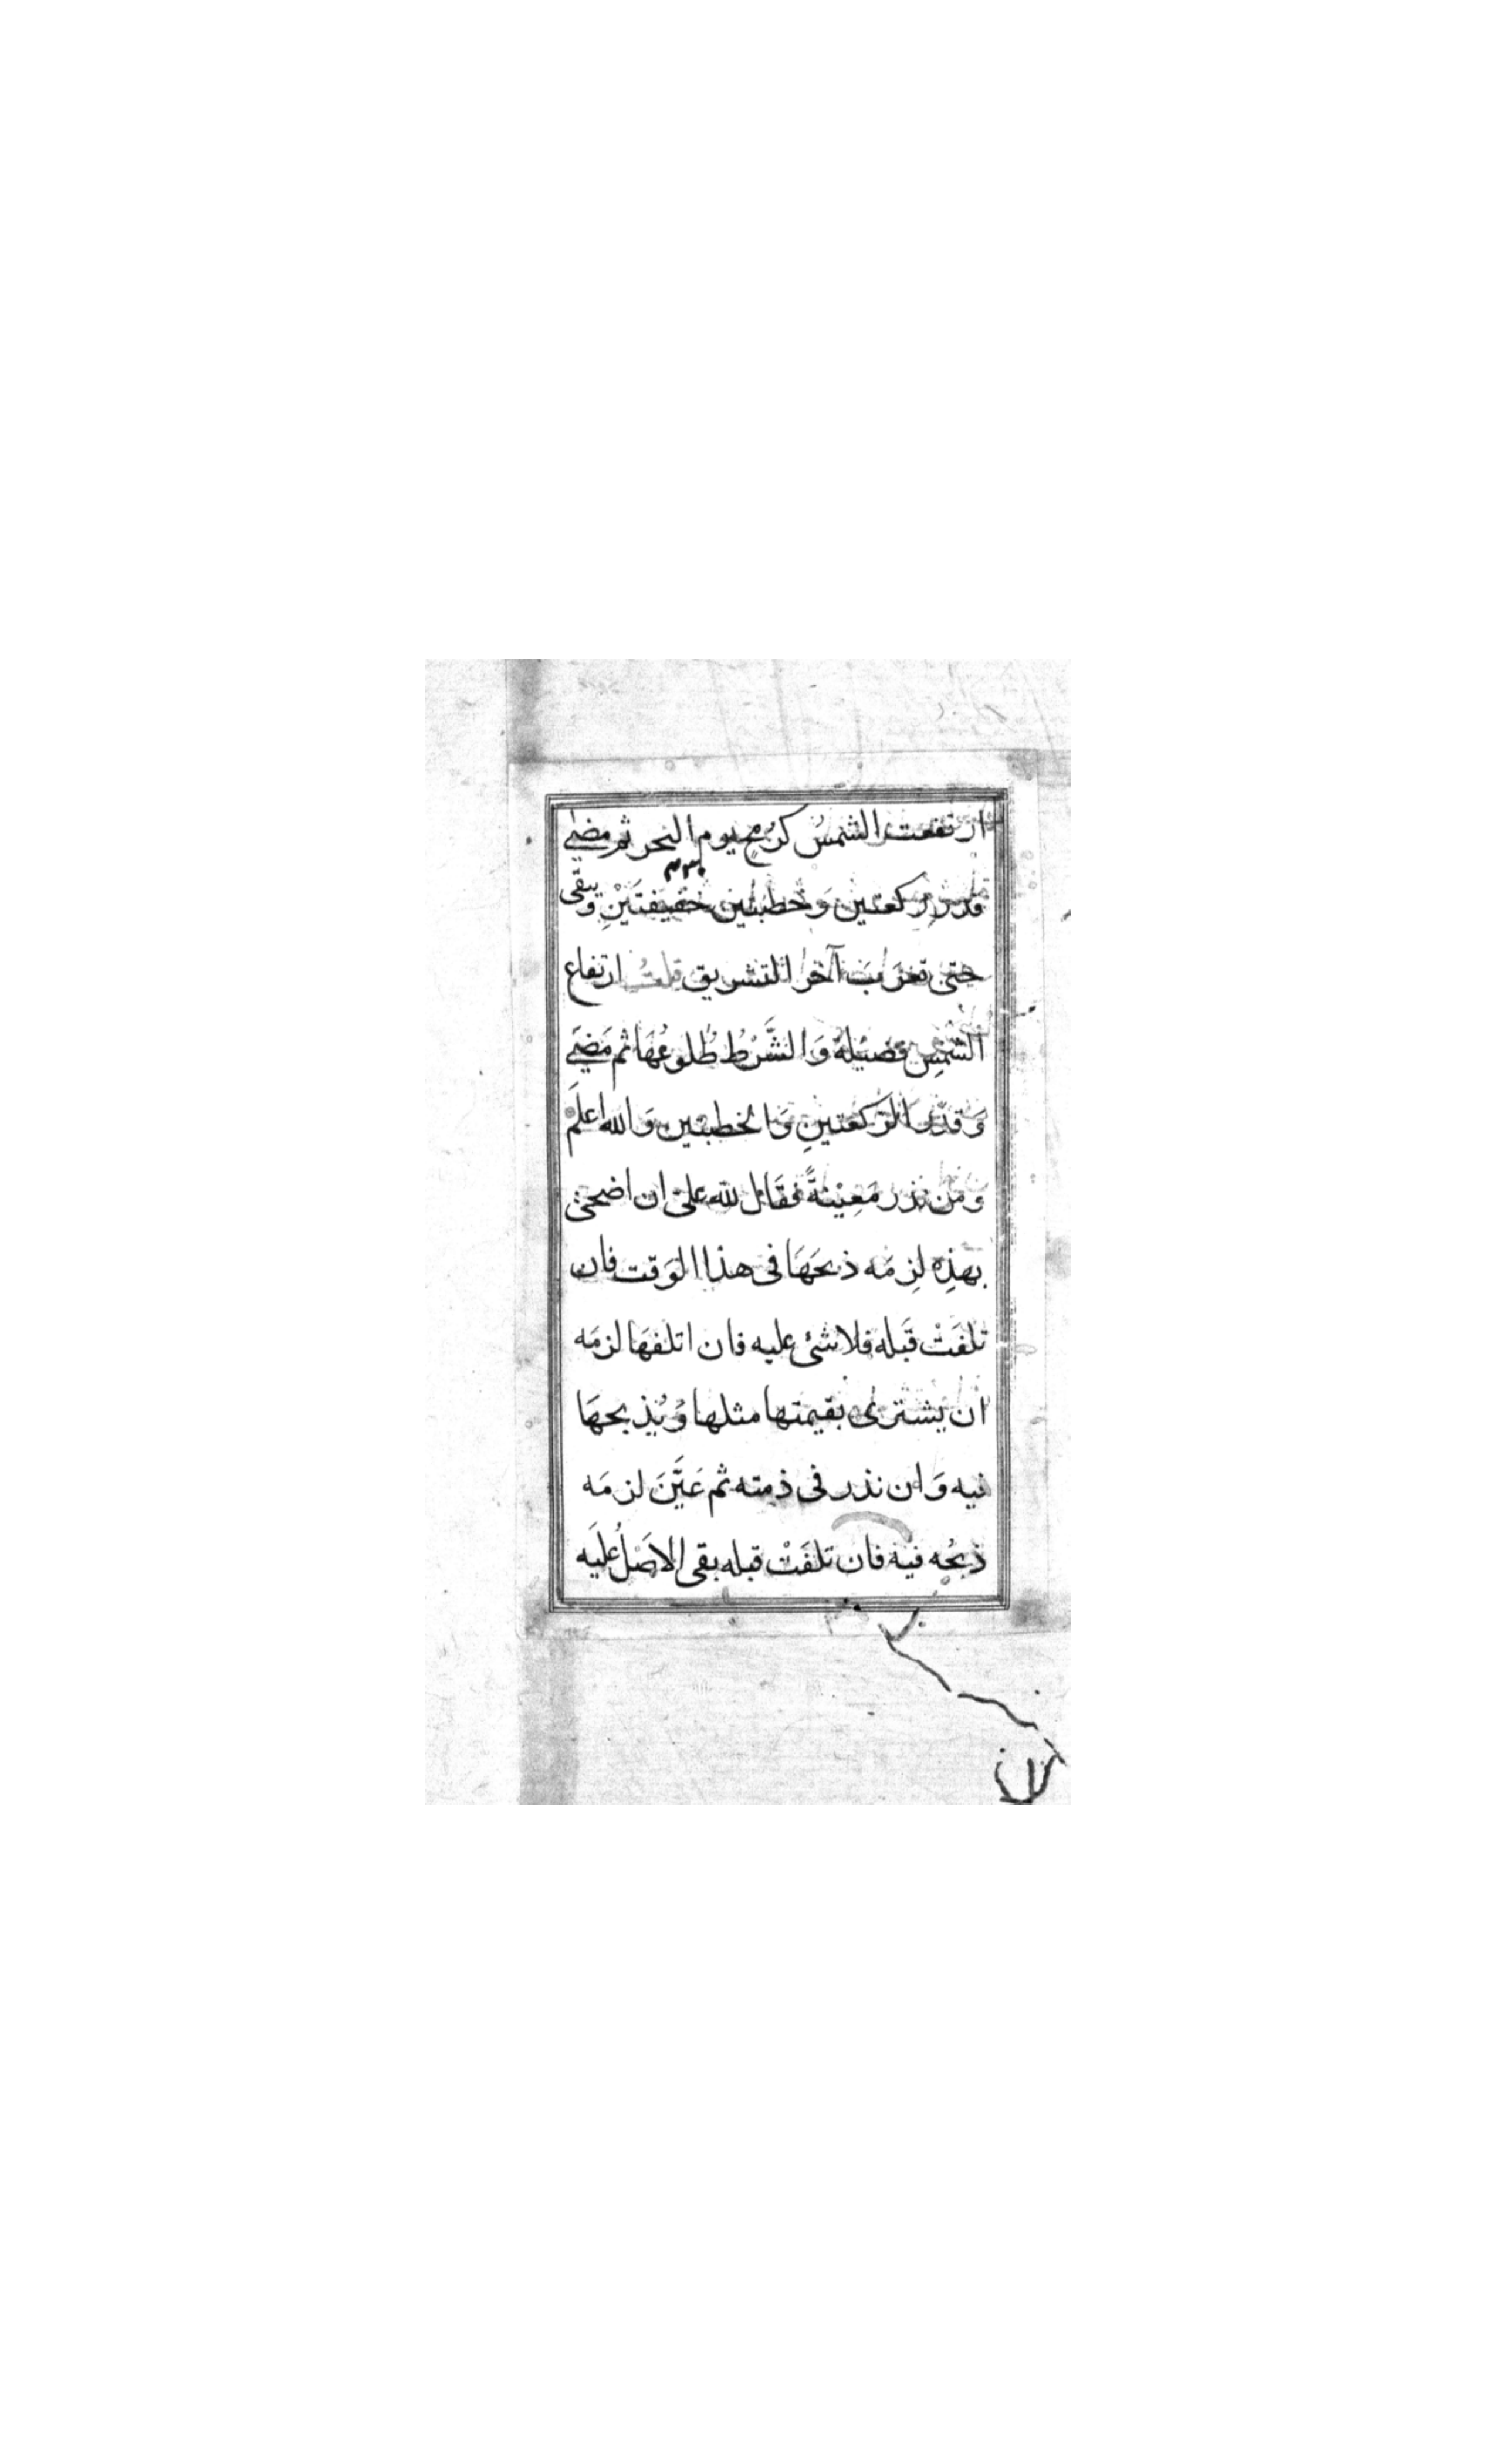 ارتفعت الشمسُ كرُمحٍ يوم النحر ثم مضى
قدر ركعتين وَخطبتين خفيفتَيْنِ ويبقى
حتى تغرَبَ آخر التشريق قلتُ ارتفاع
الشمسِ فضيلة وَالشَّرْطُ طُلوعُهَا ثم مَضىَ
وَقدْر الركعتينِ وَالخطبتين وَالله اعلَم
وَمَن نذر مَعِيْنةً فقَال لله علىّ ان اضحى
بهذِه لِزمَه ذبحَهَا فى هذا الوَقت فان
تلفَتْ قَبله فلا شئ عليه فان اتلفهَا لزمَه
ان يشترى بقيمتها مثلها وُيُذبحهَا
فيه وَان نذر فى ذمته ثم عَيَّنَ لزمَه
ذبحُه فيه فان تلفَتْ قبله بقى الاصَلُ عليَه